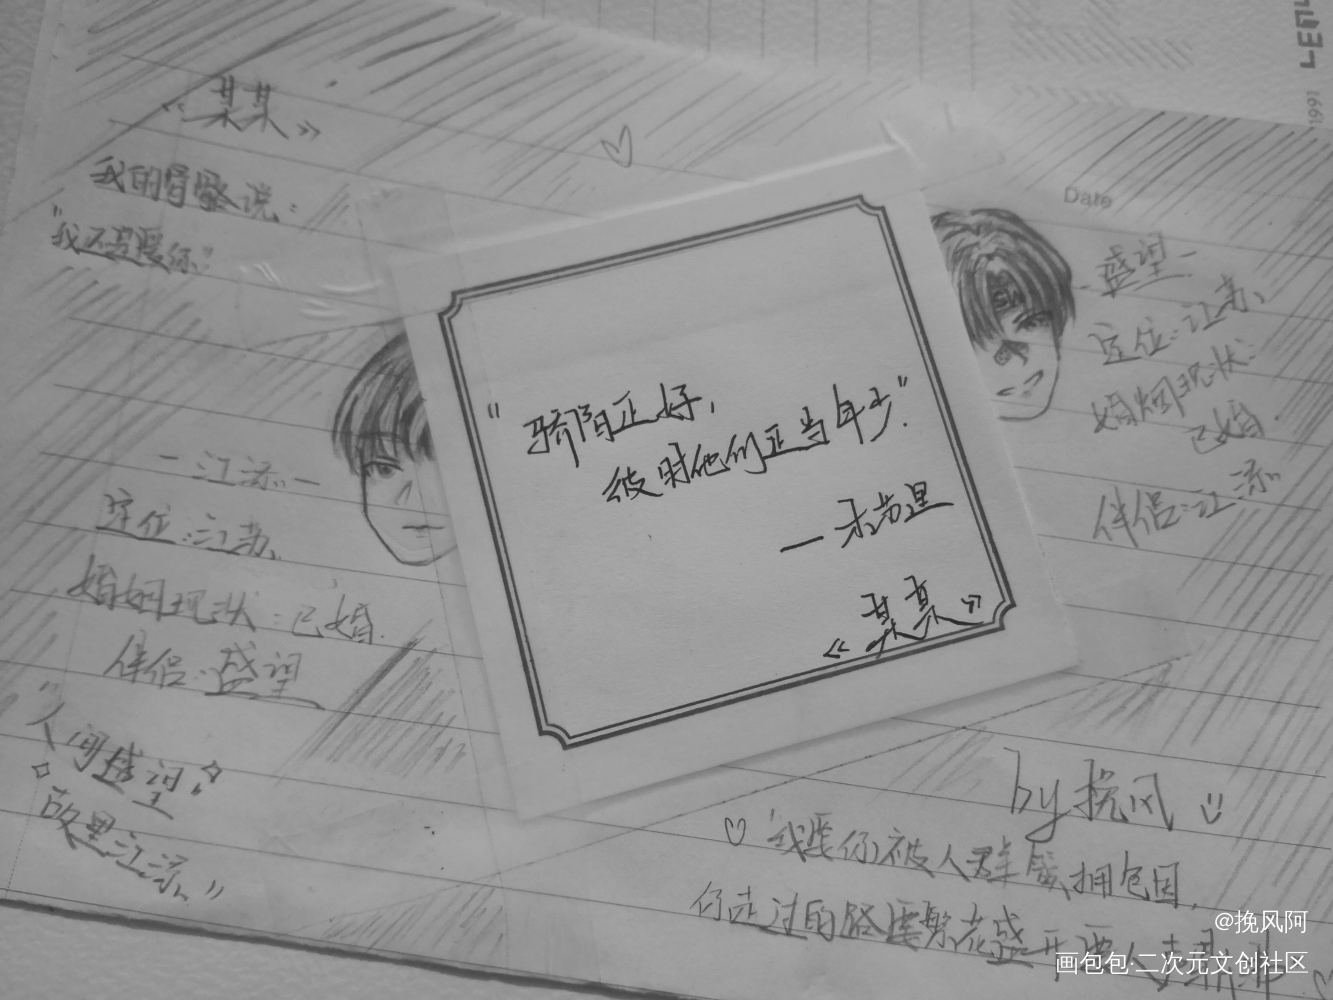 《某某》
我的骨骼说：
"我不需要你"
—江添—
定位：江苏
婚姻现状：已婚.
伴侣：盛望
"人间盛望
故里江添"
"骄阳正好，
彼时他们正当年少."
—木苏里
《某某》
Date
盛望—
定位：江苏
婚姻现状：
已婚.
伴侣：江添
by挽风
"我要你被人群簇拥包围，
你走过的路要繁花盛开要人声鼎沸
SW
1991
@挽风阿
画包包·二次元文创社区